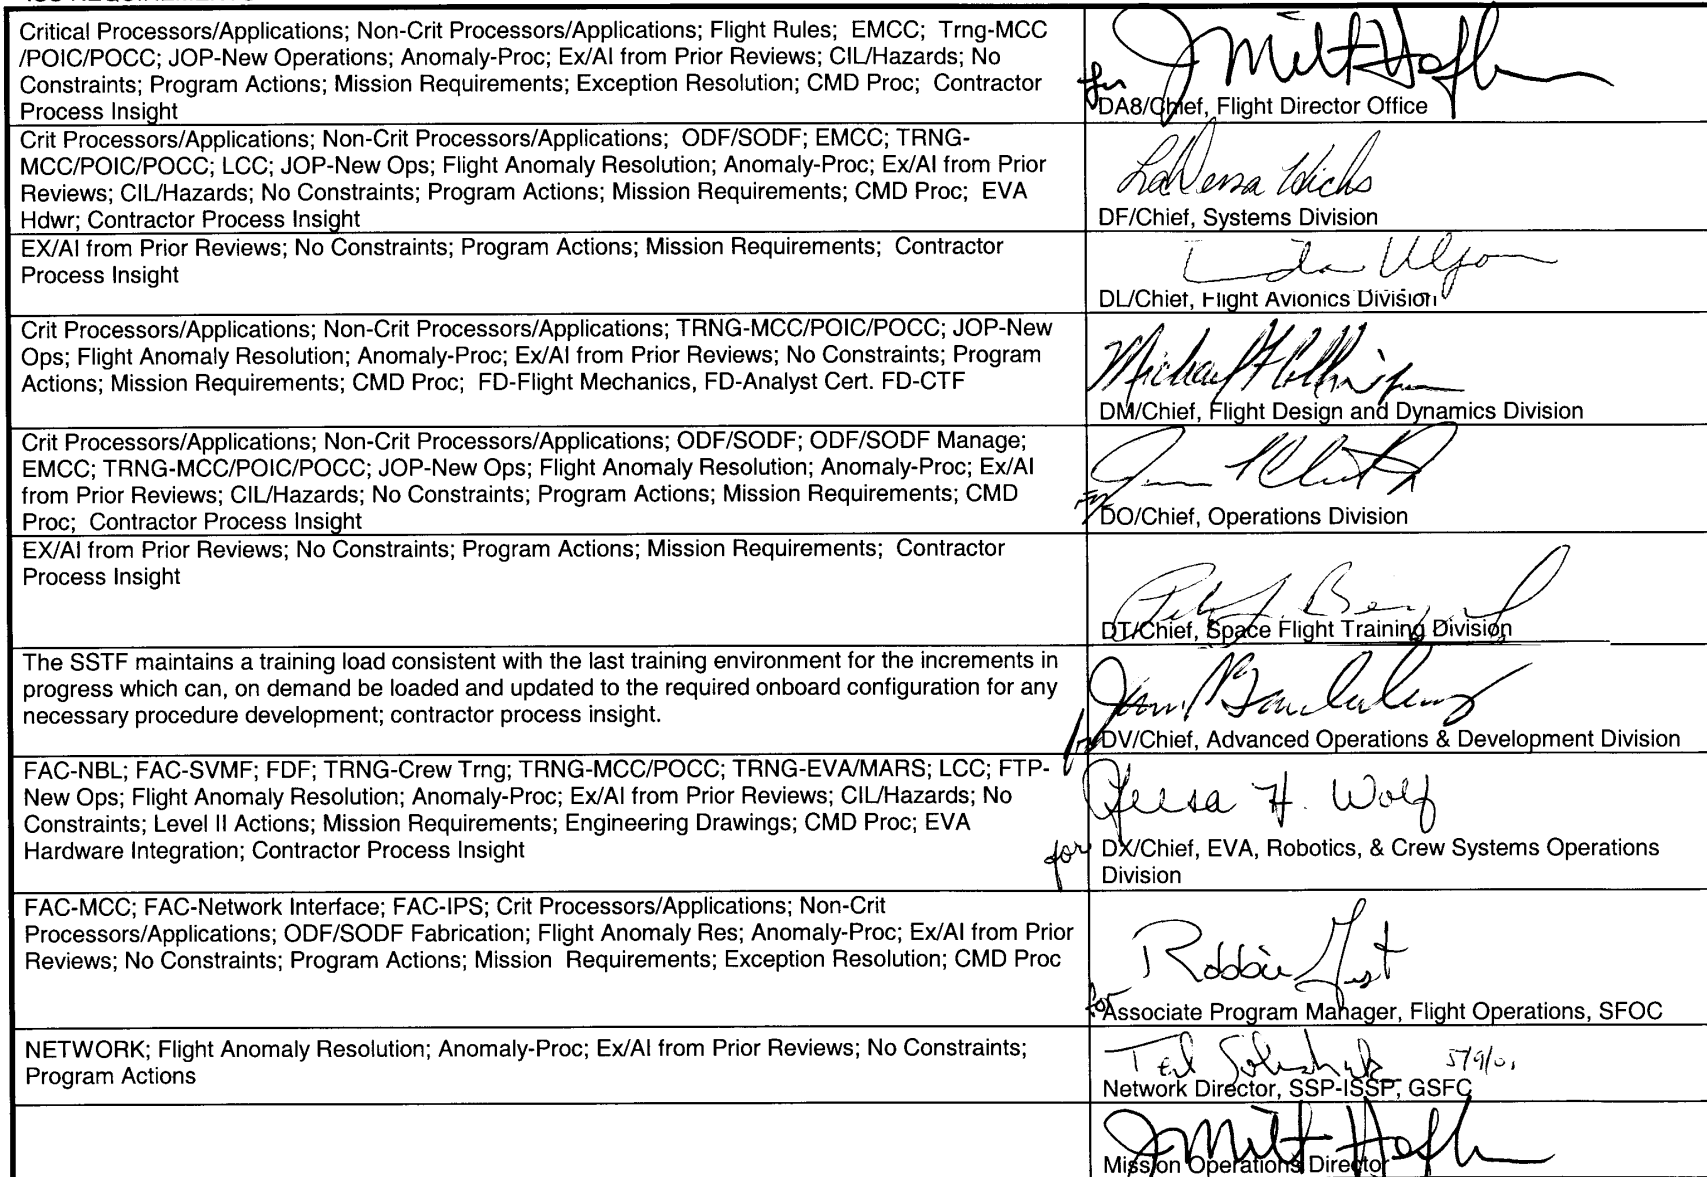 Critical Processors/Applications; Non-Crit Processors/Applications; Flight Rules; EMCC; Trng-MCC
/POIC/POCC; JOP-New Operations; Anomaly-Proc; Ex/AI from Prior Reviews; CIL/Hazards; No
Constraints; Program Actions; Mission Requirements; Exception Resolution; CMD Proc; Contractor
Process Insight
J Milt Hefl
for
DA8/Chief, Flight Director Office
Crit Processors/Applications; Non-Crit Processors/Applications; ODF/SODF; EMCC; TRNG-
MCC/POIC/POCC; LCC; JOP-New Ops; Flight Anomaly Resolution; Anomaly-Proc; Ex/AI from Prior
Reviews; CIL/Hazards; No Constraints; Program Actions; Mission Requirements; CMD Proc; EVA
Hdwr; Contractor Process Insight
Hicks
DF/Chief, Systems Division
EX/AI from Prior Reviews; No Constraints; Program Actions; Mission Requirements; Contractor
Process Insight
DL/Chief, Flight Avionics Division
Crit Processors/Applications; Non-Crit Processors/Applications; TRNG-MCC/POIC/POCC; JOP-New
Ops; Flight Anomaly Resolution; Anomaly-Proc; Ex/AI from Prior Reviews; No Constraints; Program
Actions; Mission Requirements; CMD Proc; FD-Flight Mechanics, FD-Analyst Cert. FD-CTF
Michael
DM/Chief, Flight Design and Dynamics Division
Crit Processors/Applications; Non-Crit Processors/Applications; ODF/SODF; ODF/SODF Manage;
EMCC; TRNG-MCC/POIC/POCC; JOP-New Ops; Flight Anomaly Resolution; Anomaly-Proc; Ex/AI
from Prior Reviews; CIL/Hazards; No Constraints; Program Actions; Mission Requirements; CMD
Proc; Contractor Process Insight
DO/Chief, Operations Division
EX/AI from Prior Reviews; No Constraints; Program Actions; Mission Requirements; Contractor
Process Insight
DT/Chief, Space Flight Training Division
The SSTF maintains a training load consistent with the last training environment for the increments in
progress which can, on demand be loaded and updated to the required onboard configuration for any
necessary procedure development; contractor process insight.
for
DV/Chief, Advanced Operations & Development Division
FAC-NBL; FAC-SVMF; FDF; TRNG-Crew Trng; TRNG-MCC/POCC; TRNG-EVA/MARS; LCC; FTP-
New Ops; Flight Anomaly Resolution; Anomaly-Proc; Ex/AI from Prior Reviews; CIL/Hazards; No
Constraints; Level II Actions; Mission Requirements; Engineering Drawings; CMD Proc; EVA
Hardware Integration; Contractor Process Insight
H. Wolf
for DX/Chief, EVA, Robotics, & Crew Systems Operations
Division
FAC-MCC; FAC-Network Interface; FAC-IPS; Crit Processors/Applications; Non-Crit
Processors/Applications; ODF/SODF Fabrication; Flight Anomaly Res; Anomaly-Proc; Ex/AI from Prior
Reviews; No Constraints; Program Actions; Mission Requirements; Exception Resolution; CMD Proc
Robbie
for
Associate Program Manager, Flight Operations, SFOC
NETWORK; Flight Anomaly Resolution; Anomaly-Proc; Ex/AI from Prior Reviews; No Constraints;
Program Actions
Ted
Network Director, SSP-ISSP, GSFC
J Milt Hefl
Mission Operations Director